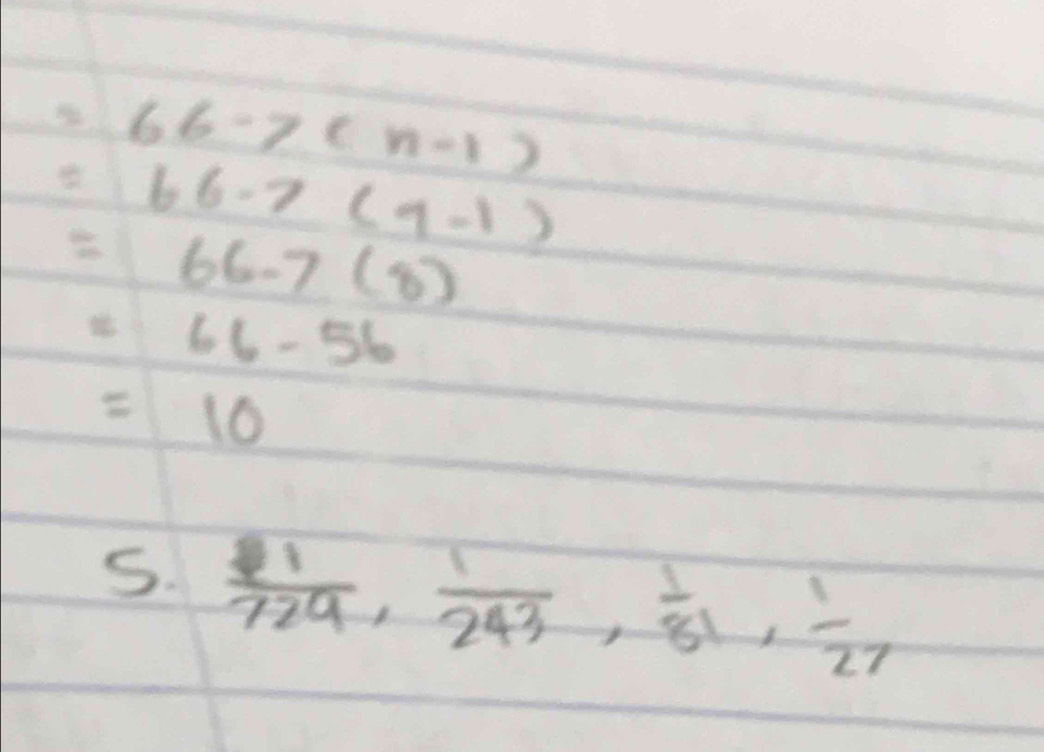 = 66-7(n-1)
= 66-7(9-1)
= 66-7(8)
= 66-56
= 10
5. 1/729, 1/243, 1/81, 1/27